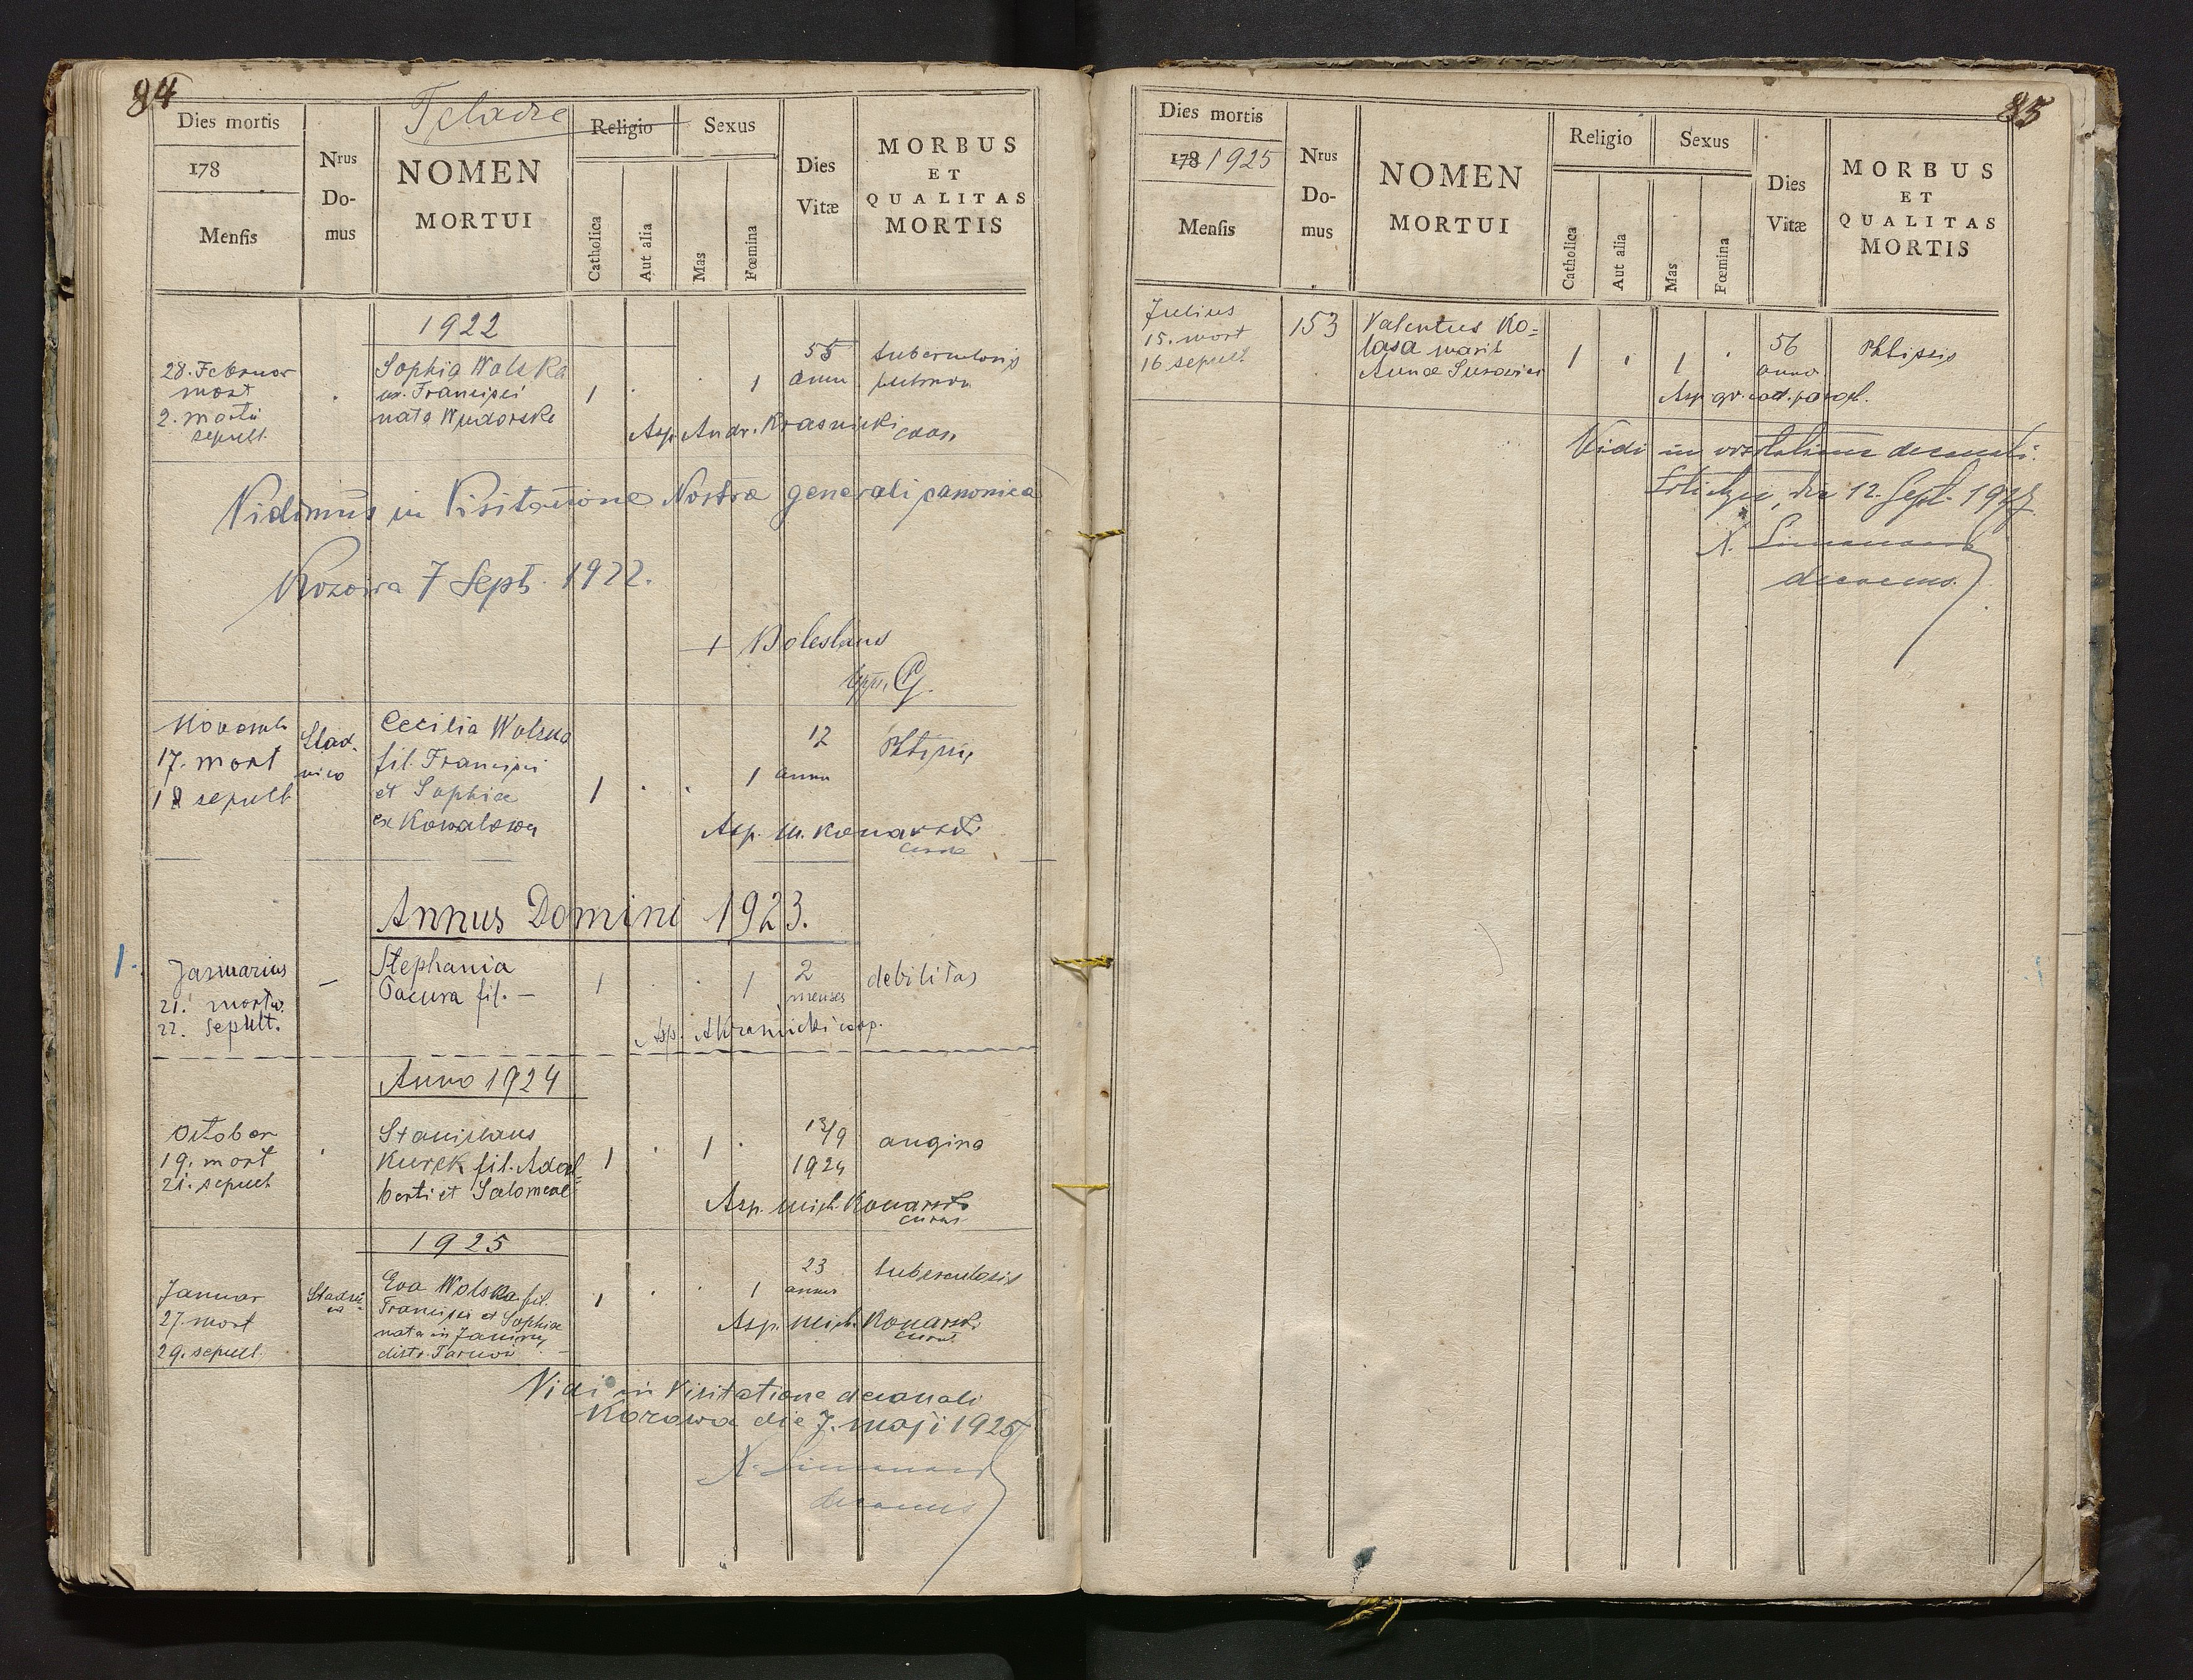 84
Dies mortis
178
Mensis
Nrus
Do-
mus
NOMEN
MORTUI
Religio
Catholica
Aut alia
Sexus
Mas
Fœmina
Dies
Vitæ
MORBUS
ET
QUALITAS
MORTIS
1922
28. Februar
mort
2. martii
sepult.
Sophia Wolska
ux. Francisci
nata
1
1
55
anni
tuberculosis
pulmon
Asp. Andr. Krasnicki coop
Vidimus in Visitatione Nostra generali canonica
Kozowa 7 Sept. 1922.
+ Boleslaus
Novemb
17. mort
18 sepult
Stad-
nica
Cecilia Wolska
fil. Francisci
et Sophiae
ex Kowalowa
1
1
12
anni
Phtisis
Asp. M. Konarski
Annus Domini 1923.
1.
Januarius
21. mortu.
22. Sepult.
—
Stephania
Pacura fil. —
1
1
2
menses
debilitas
Asp. AKrasnicki coop.
Anno 1924
October
19. mort
21. sepult
Stanislaus
Kurek fil. Adal=
berti et Salomeae
1
1
13/9
1924
angina
Asp. Mich. Konarski
1925
Januar
27. mort
29. sepult.
Eva Wolska fil.
Francisci et Sophiae
nata in
distr. Tarnów
1
1
23
annor
tuberculosis
Asp. Mich. Konarski
curat
Vidi in Visitatione decanali
Kozowa die 7. maji 1925
decanus
85
Dies mortis
178 1925
Mensis
Nrus
Do-
mus
NOMEN
MORTUI
Religio
Catholica
Aut alia
Sexus
Mas
Fœmina
Dies
Vitæ
MORBUS
ET
QUALITAS
MORTIS
Julius
15. mort
16 sepult
153
Valentus Ko=
lasa marit
Annae
1
1
56
annor
Phtisis
Asp. gr. cat. paroch.
Vidi in visitatione decanali
die 12. Sept.
decanus.